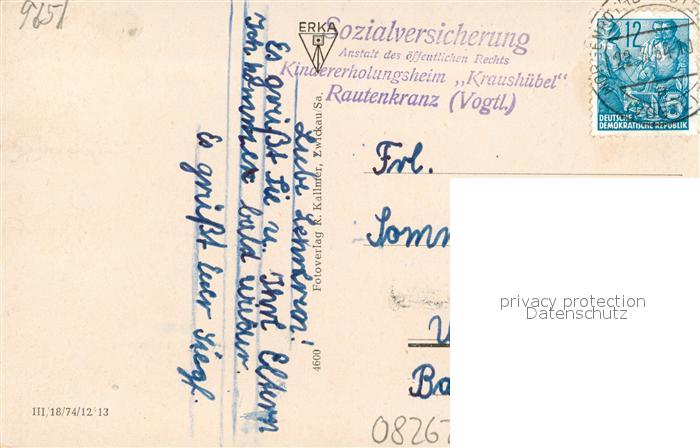 9651
ERKA
Sozialversicherung
Anstalt des öffentlichen Rechts
Kindererholungsheim „Kraushübel"
Rautenkranz (Vogtl.)
12
DEUTSCHE
DEMOKRATISCHE REPUBLIK
Liebe Lehrerin!
Es grüßt Sie u. Ihre Eltern
Ich komme bald wieder.
Es grüßt Euer Siegf.
4600 Fotoverlag R. Kallmer, Zwickau/Sa.
Frl.
Somm
Ba
privacy protection
Datenschutz
III/18/74/12 13
08262